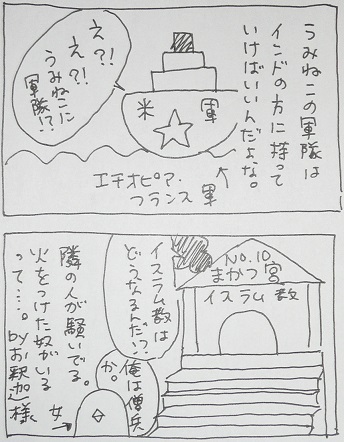 うみねこの軍隊は
インドの方に持って
いけばいいんだよな。
え?!
え?!
うみねこに
軍隊!?
米 軍
エチオピア・
フランス軍
NO.10
まかつ宮
イスラム教
イスラム教は
どうなるんだ!?
俺は僧兵
か。
隣の人が騒いでる。
火をつけた奴がいる
って…。byお釈迦様
女→